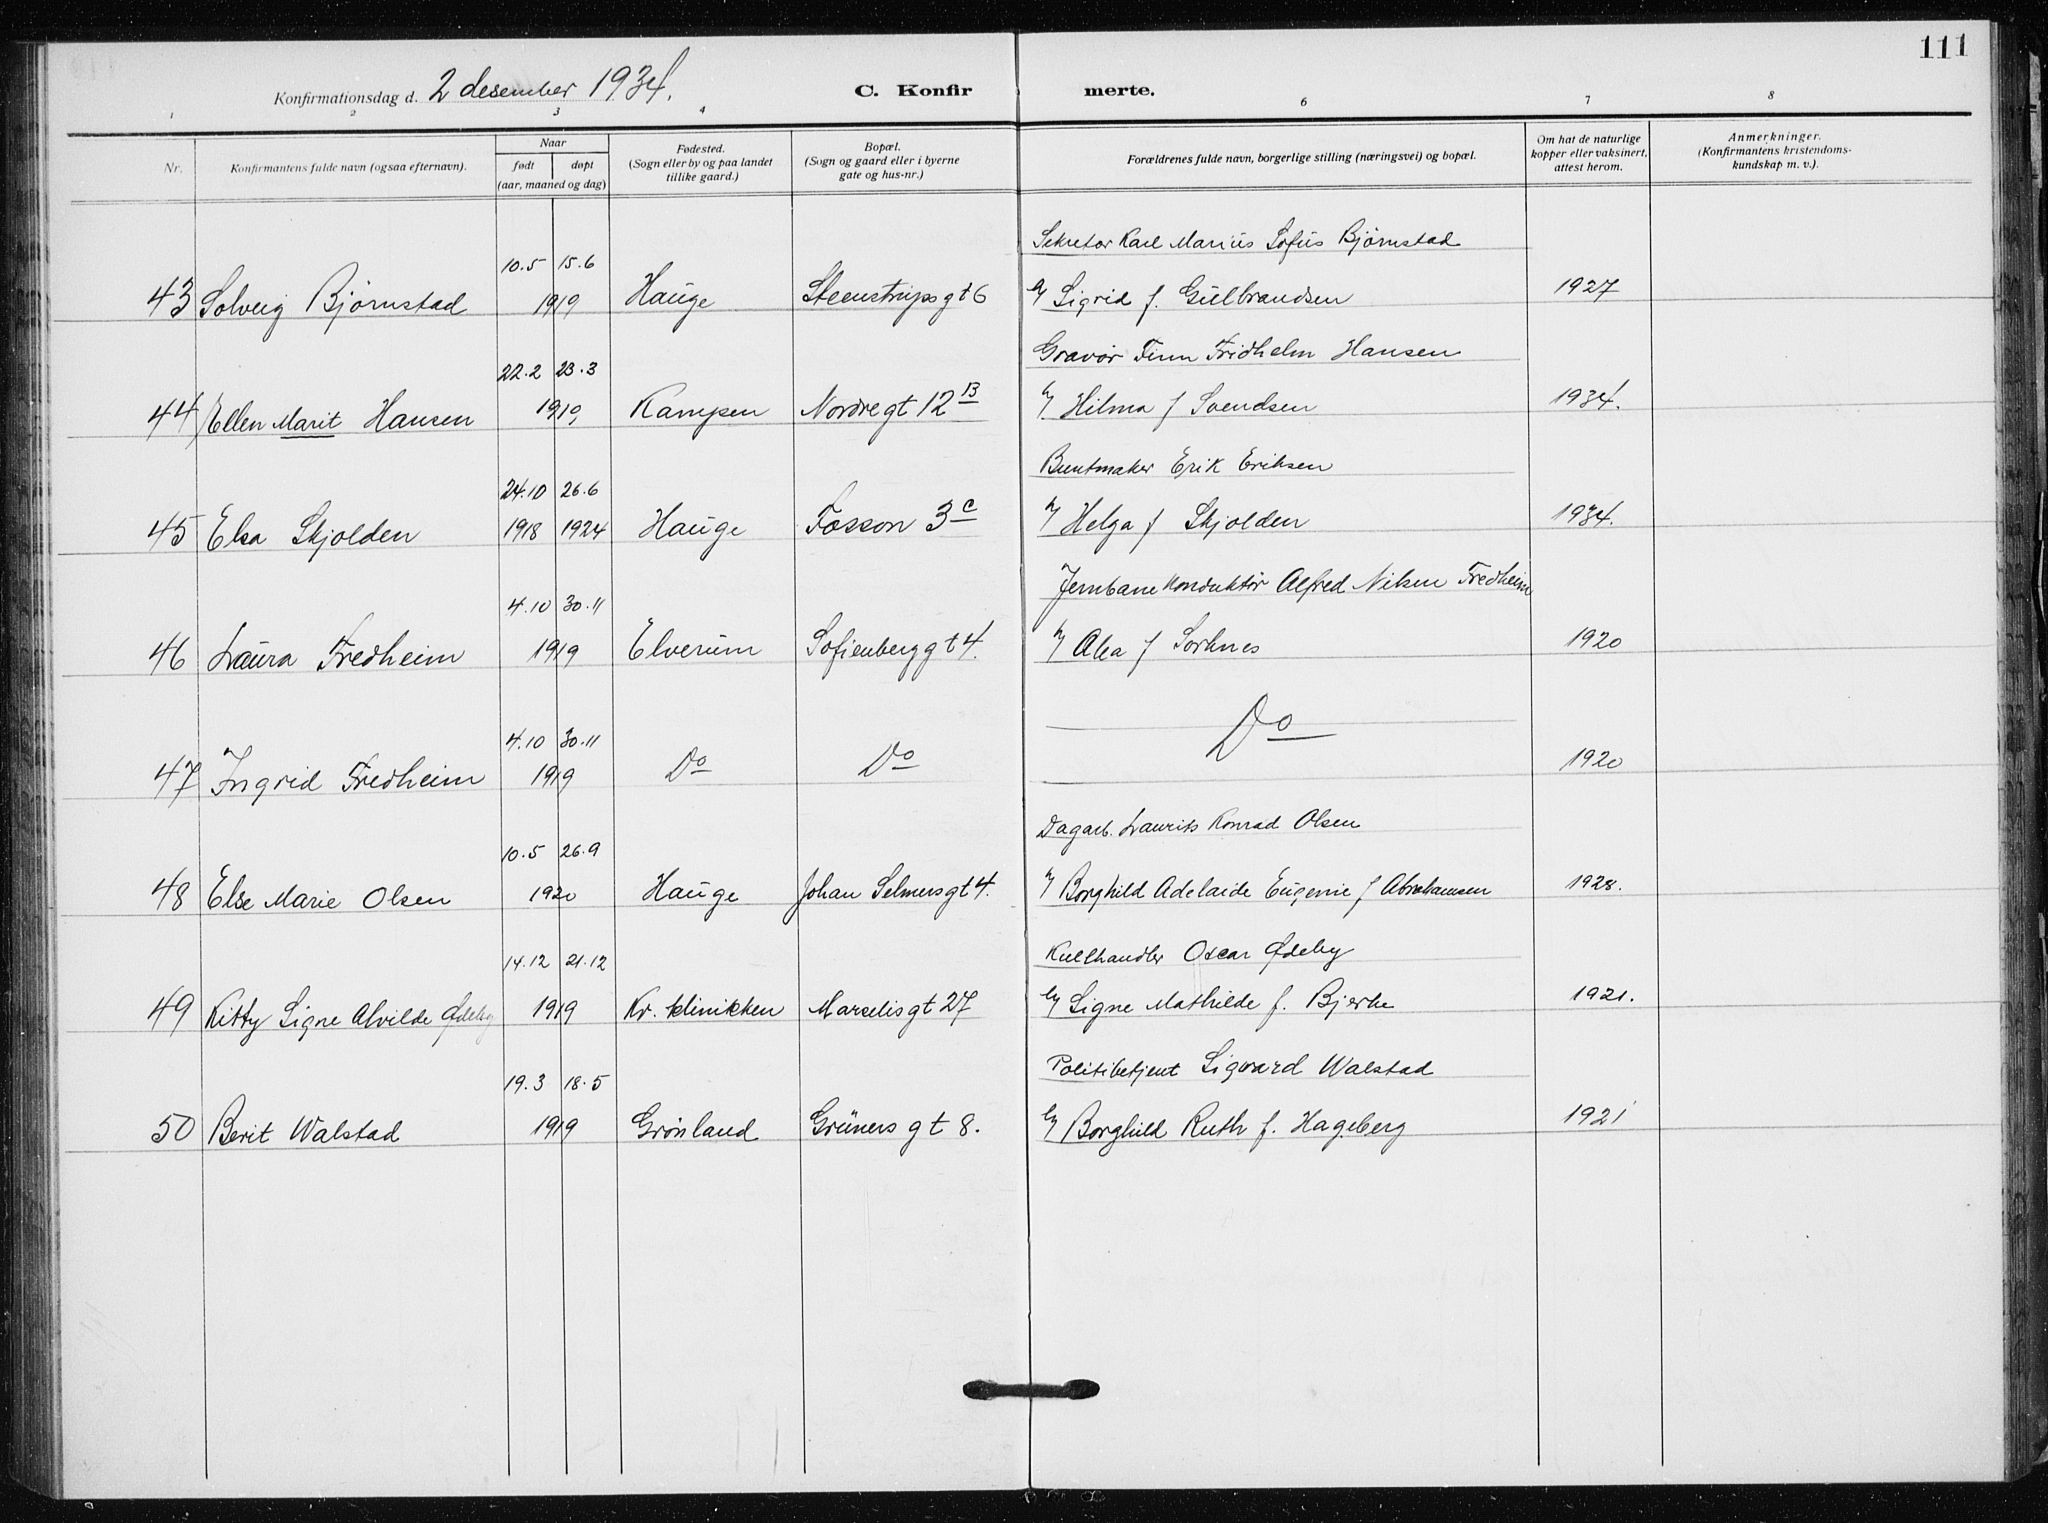 111
Konfirmationsdag d. 2 desember 1934.
C. Konfir merte.
1 2 3 4 6 7 8
Nr.
Konfirmantens fulde navn (ogsaa efternavn).
Naar
født døpt
(aar, maaned og dag)
Fødested.
(Sogn eller by og paa landet
tillike gaard.)
Bopæl.
(Sogn og gaard eller i byerne
gate og hus-nr.)
Forældrenes fulde navn, borgerlige stilling (næringsvei) og bopæl.
Om hat de naturlige
kopper eller vaksinert,
attest herom.
Anmerkninger.
(Konfirmantens kristendoms-
kundskap m. v.).
Sekretær Karl Marius Sofus Bjørnstad
10.5 15.6
43 Solveig Bjørnstad 1919 Hauge Steenstrupsgt 6 Sigrid f. Gulbrandsen 1927
Gravør Finn Fridhelm Hansen
22.2 23.3
44 Ellen Marit Hansen 1919 Kampen Nordregt 12 B Hilma f Svendsen 1934.
Buntmaker Erik Eriksen
24.10 26.6
45 Elsa Skjolden 1918 1924 Hauge Fossvn 3 c Helga f Skjolden 1934.
Jernbanekonduktør Alfred Nilsen Fredheim
4.10 30.11
46 Laura Fredheim 1919 Elverum Sofienberggt 4. f Sorknes 1920
Do
4.10 30.11
47 Ingrid Fredheim 1919 Do Do 1920
Dagarb. Laurits Konrad Olsen
10.5 26.9
48 Else Marie Olsen 1920 Hauge Johan Selmersgt 4. Borghild Adelaide Eugenie f Abrahamsen 1928.
Kullhandler Oscar Ødeby
14.12 21.12
49 Kitty Signe Alvilde Ødeby 1919 Kr. klinikken Marselisgt 27 Signe Mathilde f. Bjerke 1921.
Politibetjent Sigvard Walstad
19.3 18.5
50 Berit Walstad 1919 Grønland Grüners gt 8. Borghild Ruth f. Hageberg 1921